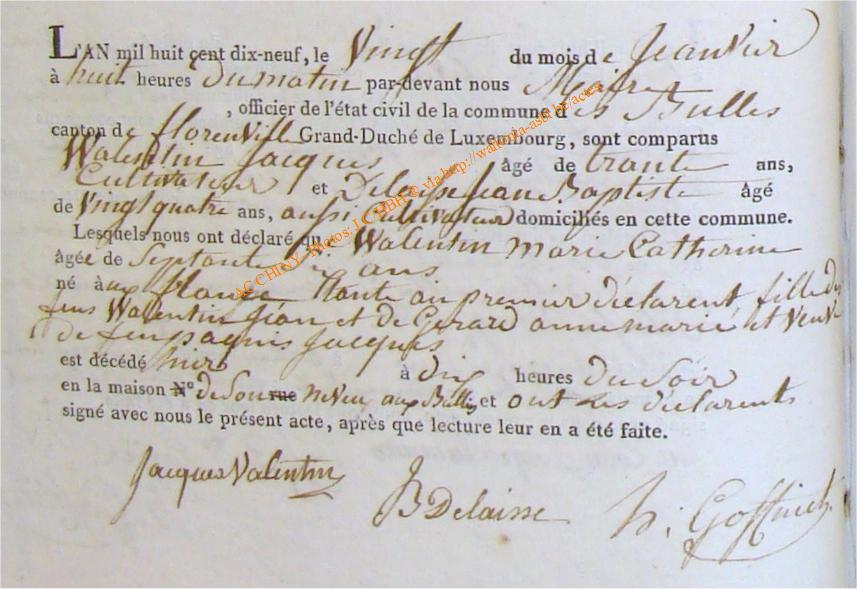 L'AN mil huit cent dix-neuf, le Vingt du mois de Jeanvier
à huit heures du matin par-devant nous Maire
, officier de l'état civil de la commune des Bulles
canton de florenville Grand-Duché de Luxembourg, sont comparus
Walentin Jacques âgé de trante ans,
Cultivateur et Delaisse Jean Baptiste âgé
de Vingt quatre ans, aussi Cultivateur domiciliés en cette commune.
Lesquels nous ont déclaré que Walentin marie Catherine
âgée de Septante ans
né aux tante au premier déclarent, fille de
feus Walentin Jean et de Gerard anne marie et veuve
de feu paquis Jacques
est décédé hier à dix heures du Soir
en la maison N° de Son rue neveu aux Bulles et ont les déclarents
signé avec nous le présent acte, après que lecture leur en a été faite.
Jacques Valentin
JB Delaisse
h. Goffinet
AC CHINY - Photos: J.C. HBH © via http://wallonia-asbl.be/actes